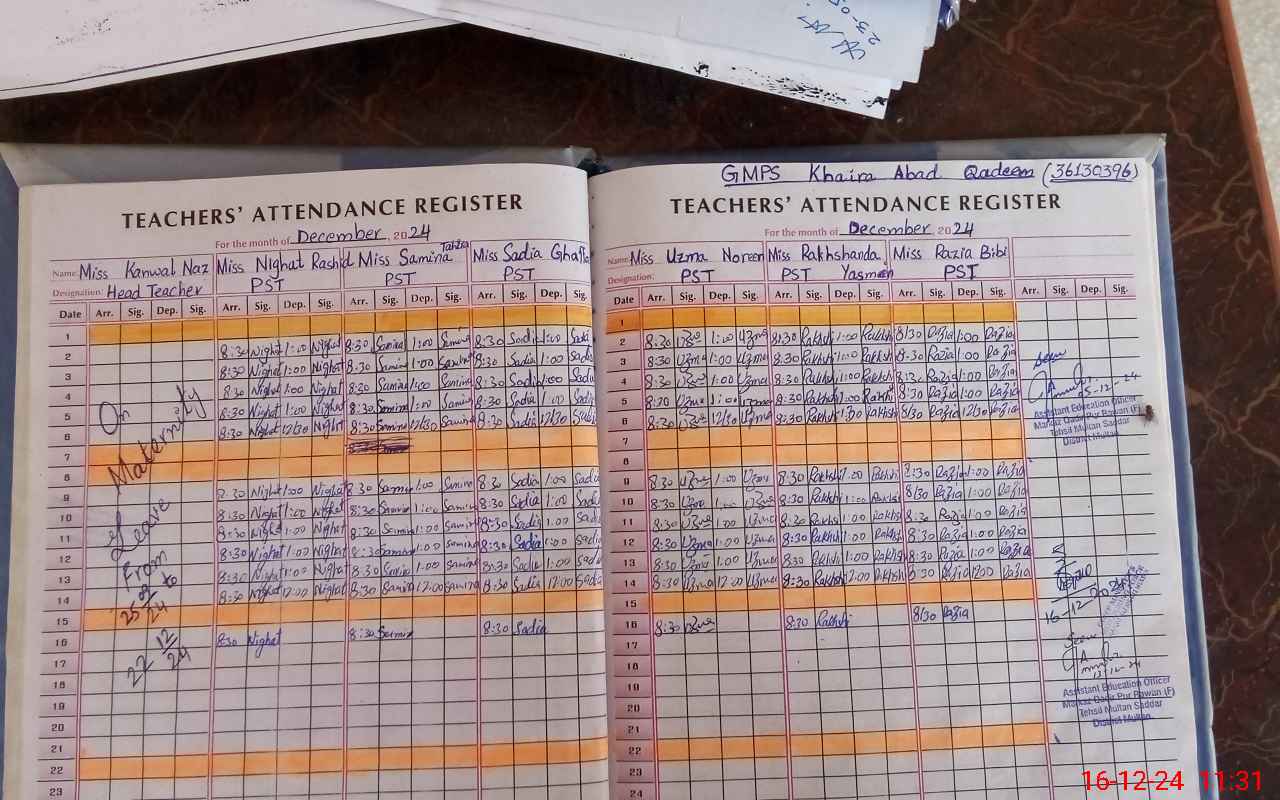 23-05
GMPS Khaira Abad Qadeem (36130396)
TEACHERS' ATTENDANCE REGISTER
For the month of December, 2024
Name: Miss Kanwal Naz Miss Nighat Rashid Miss Samina Tahira Miss Sadia Ghaffa
Designation: Head Teacher PST PST PST
Date Arr. Sig. Dep. Sig. Arr. Sig. Dep. Sig. Arr. Sig. Dep. Sig. Arr. Sig. Dep. Sig.
1
2 8:30 Nighat 1:00 Nighat 8:30 Samina 1:00 Samina 8:30 Sadia 1:00 Sadi
3 8:30 Nighat 1:00 Nighat 8:30 Samina 1:00 Samina 8:30 Sadia 1:00 Sadi
4 8:30 Nighat 1:00 Nighat 8:30 Samina 1:00 Samina 8:30 Sadia 1:00 Sadi
5 8:30 Nighat 1:00 Nighat 8:30 Samina 1:00 Samina 8:30 Sadia 1:00 Sadi
6 8:30 Nighat 12/30 Nighat 8:30 Samina 12/30 Samina 8:30 Sadia 12/30 Sadi
7
8
9 8:30 Nighat 1:00 Nighat 8:30 Samina 1:00 Samina 8:30 Sadia 1:00 Sadia
10 8:30 Nighat 1:00 Nighat 8:30 Samina 1:00 Samina 8:30 Sadia 1:00 Sadi
11 8:30 Nighat 1:00 Nighat 8:30 Samina 1:00 Samina 8:30 Sadia 1:00 Sadi
12 8:30 Nighat 1:00 Nighat 8:30 Samina 1:00 Samina 8:30 Sadia 1:00 Sadi
13 8:30 Nighat 1:00 Nighat 8:30 Samina 1:00 Samina 8:30 Sadia 1:00 Sadi
14 8:30 Nighat 12:00 Nighat 8:30 Samina 12:00 Samina 8:30 Sadia 12:00 Sadia
15
16 8:30 Nighat 8:30 Samina 8:30 Sadia
17
18
19
20
21
22
23
On
Maternity
Leave
From
25/09/24 to
22 12/24
TEACHERS' ATTENDANCE REGISTER
For the month of December, 2024
Name: Miss Uzma Noreen Miss Rakhshanda Yasmeen Miss Razia Bibi
Designation: PST PST PST
Date Arr. Sig. Dep. Sig. Arr. Sig. Dep. Sig. Arr. Sig. Dep. Sig. Arr. Sig. Dep. Sig.
1
2 8:30 Uzma 1:00 Uzma 8:30 Rakhshi 1:00 Rakhshi 8/30 Razia 1:00 Razia
3 8:30 Uzma 1:00 Uzma 8:30 Rakhshi 1:00 Rakhshi 8:30 Razia 1:00 Razia
4 8:30 Uzma 1:00 Uzma 8:30 Rakhshi 1:00 Rakhshi 8:30 Razia 1:00 Razia
5 8:30 Uzma 1:00 Uzma 8:30 Rakhshi 1:00 Rakhshi 8:30 Razia 1:00 Razia
6 8:30 Uzma 12/30 Uzma 8:30 Rakhshi 1:30 Rakhshi 8/30 Razia 12/30 Razia
7
8
9 8:30 Uzma 1:00 Uzma 8:30 Rakhshi 1:00 Rakhshi 8:30 Razia 1:00 Razia
10 8:30 Uzma 1:00 Uzma 8:30 Rakhshi 1:00 Rakhshi 8/30 Razia 1:00 Razia
11 8:30 Uzma 1:00 Uzma 8:30 Rakhshi 1:00 Rakhshi 8/30 Razia 1:00 Razia
12 8:30 Uzma 1:00 Uzma 8:30 Rakhshi 1:00 Rakhshi 8:30 Razia 1:00 Razia
13 8:30 Uzma 1:00 Uzma 8:30 Rakhshi 1:00 Rakhshi 8:30 Razia 1:00 Razia
14 8:30 Uzma 12:00 Uzma 8:30 Rakhshi 12:00 Rakhshi 8:30 Razia 12:00 Razia
15
16 8:30 Uzma 8:30 Rakhshi 8/30 Razia
17
18
19
20
21
22
23
24
Seen
05-12-24
Assistant Education Officer
Markaz Qadir Pur Rawan (F)
Tehsil Multan Saddar
District Multan
16-12-2024
Seen
Assistant Education Officer
Markaz Qadir Pur Rawan (F)
Tehsil Multan Saddar
District Multan
16-12-24 11:31